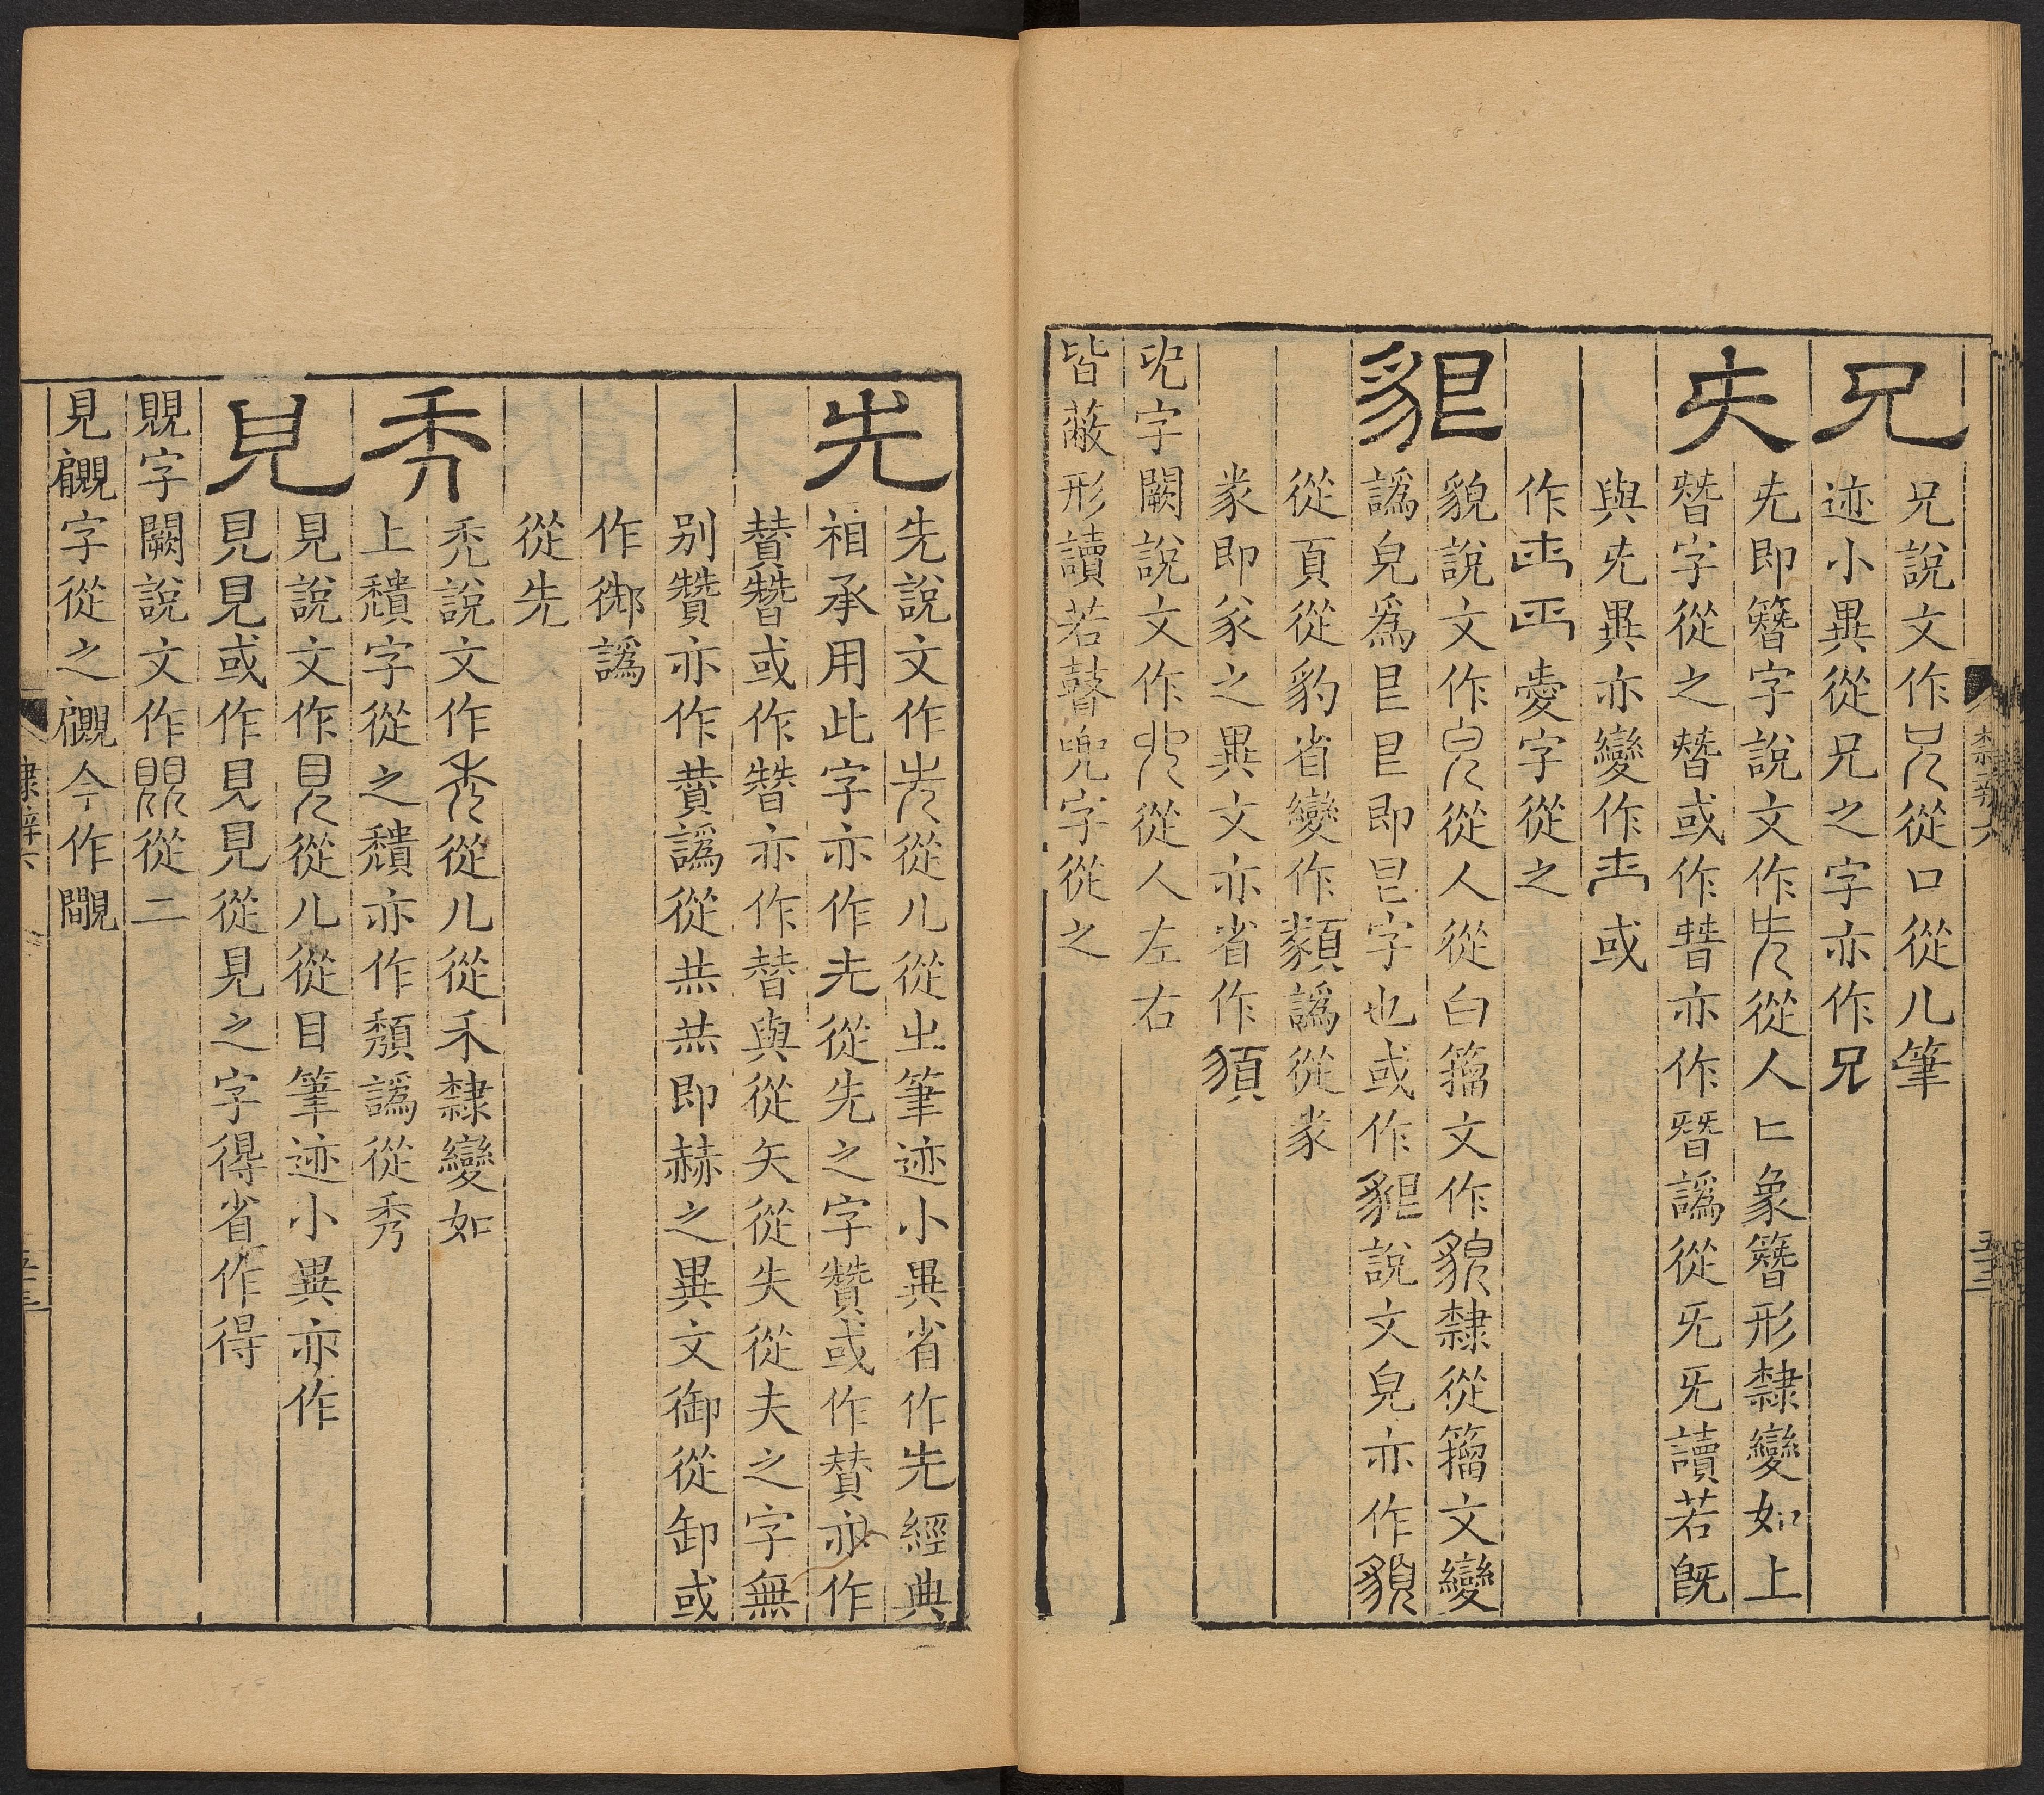 兄
兄說文作從口從儿筆
迹小異從兄之字亦作兄
兂即簪字說文作從人匕象簪形隸變如上
朁字從之朁或作亦作暜譌從旡旡讀若旣
與兂異亦變作或
作㤅字從之
貌說文作從人從白籀文作隸從籀文變
譌皃爲㠯㠯即㠯字也或作說文皃亦作䫉
從頁從豹省變作譌從豙
豙即豕之異文亦省作
字闕說文作從人左右
皆蔽形讀若瞽兜字從之
隸辨六
五十三
先
先說文作從儿從㞢筆迹小異省作先經典
相承用此字亦作从先之字贊或作賛亦作
賛朁或作朁亦作替與從矢從失從夫之字無
别贊亦作譌從㷊㷊即赫之異文御從卸或
作御譌
從先
禿
秃說文作從儿從禾隸變如
上穨字從之穨亦作頹譌從秀
見
見說文作從儿從目筆迹小異亦作
見見或作見見從見之字得省作得
覞字闕說文作從二
見字從之今作覵